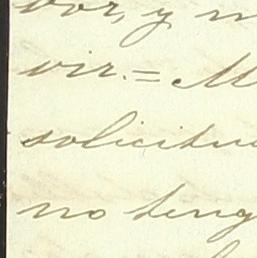 vor, y n
vir.= M
solicitu
no teng